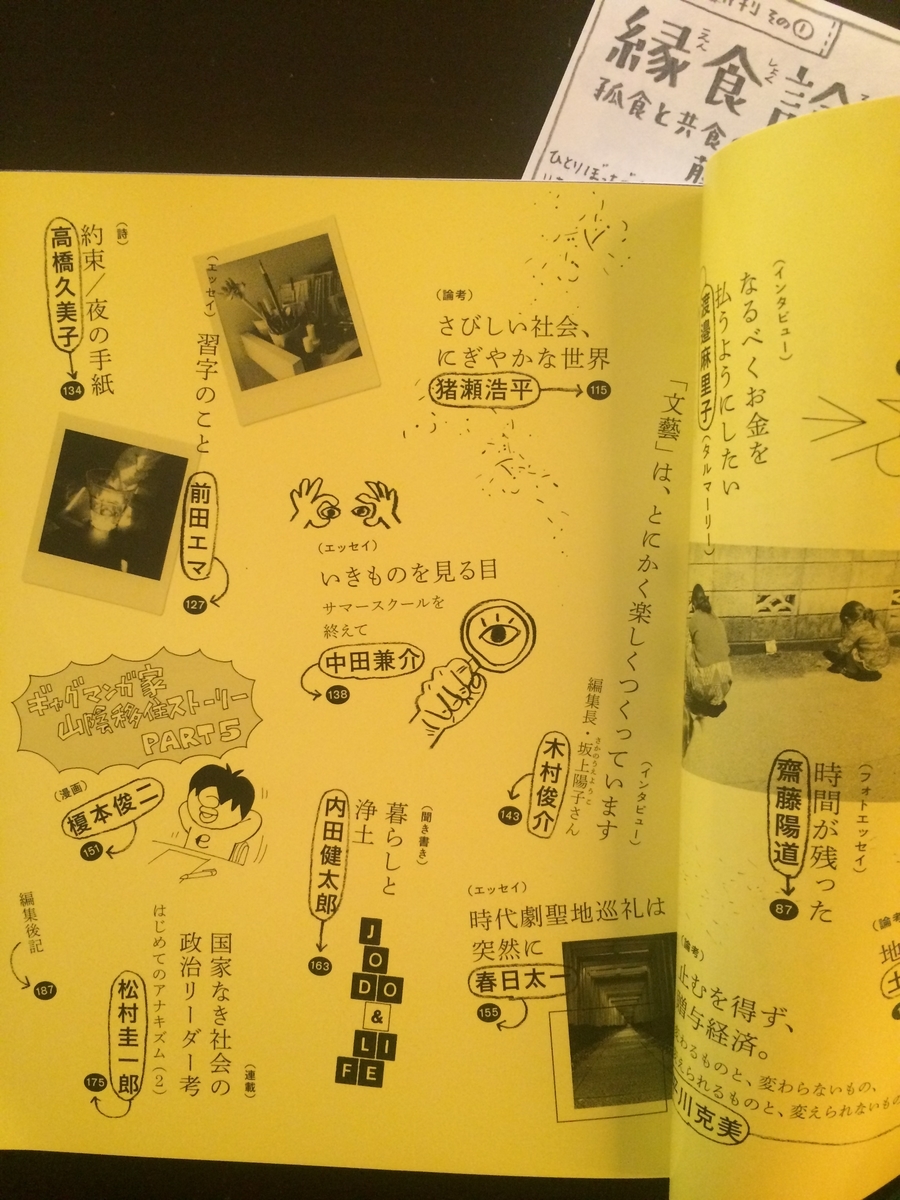 刊 その①
縁食論
えん
しょく
孤食と共食
ひとりぼっち
(インタビュー)
なるべくお金を
払うようにしたい
渡邉麻里子(タルマーリー)
(フォトエッセイ)
時間が残った
齋藤陽道
87
(論考)
止むを得ず、
贈与経済。
わるものと、変わらないもの、
えられるものと、変えられないもの
川克美
(論考)
さびしい社会、
にぎやかな世界
猪瀬浩平
115
(エッセイ)
習字のこと
前田エマ
127
(詩)
約束/夜の手紙
高橋久美子
134
(エッセイ)
いきものを見る目
サマースクールを
終えて
中田兼介
138
(インタビュー)
「文藝」は、とにかく楽しくつくっています
編集長・坂上陽子さん
さかのうえようこ
木村俊介
143
ギャグマンガ家
山陰移住ストーリー
PART5
(漫画)
榎本俊二
151
(エッセイ)
時代劇聖地巡礼は
突然に
春日太一
155
(聞き書き)
暮らしと
浄土
JODO
&
LIFE
内田健太郎
163
(連載)
国家なき社会の
政治リーダー考
はじめてのアナキズム(2)
松村圭一郎
175
編集後記
187